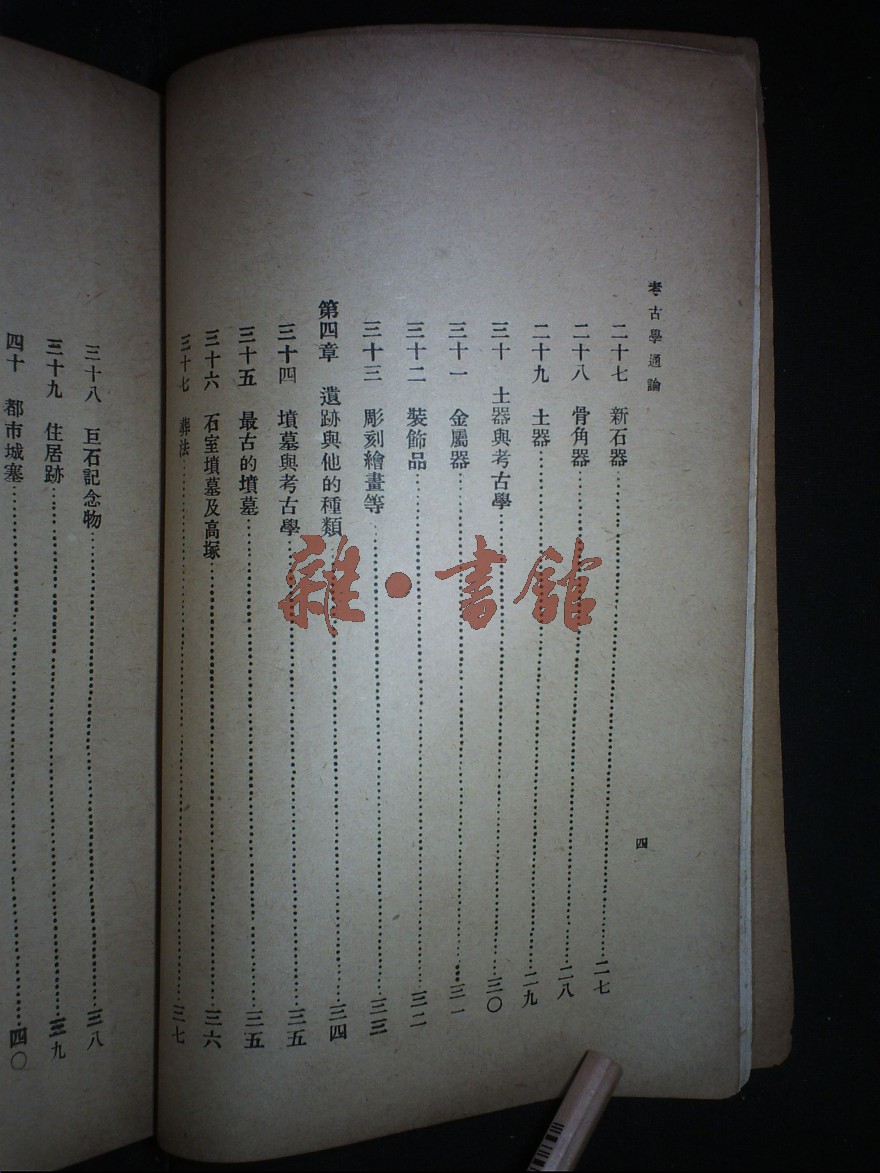 考古學通論
四
二十七 新石器……二七
二十八 骨角器……二八
二十九 土器……二九
三十 土器與考古學……三〇
三十一 金屬器……三一
三十二 裝飾品……三二
三十三 彫刻繪畫等……三三
第四章 遺跡與他的種類……三四
三十四 墳墓與考古學……三五
三十五 最古的墳墓……三五
三十六 石室墳墓及高塚……三六
三十七 葬法……三七
三十八 巨石記念物……三八
三十九 住居跡……三九
四十 都市城塞……四〇
雜·書館